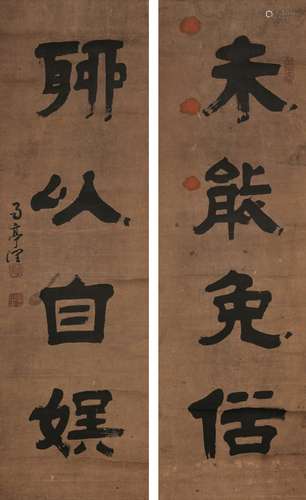 未能免俗
聊以自娱